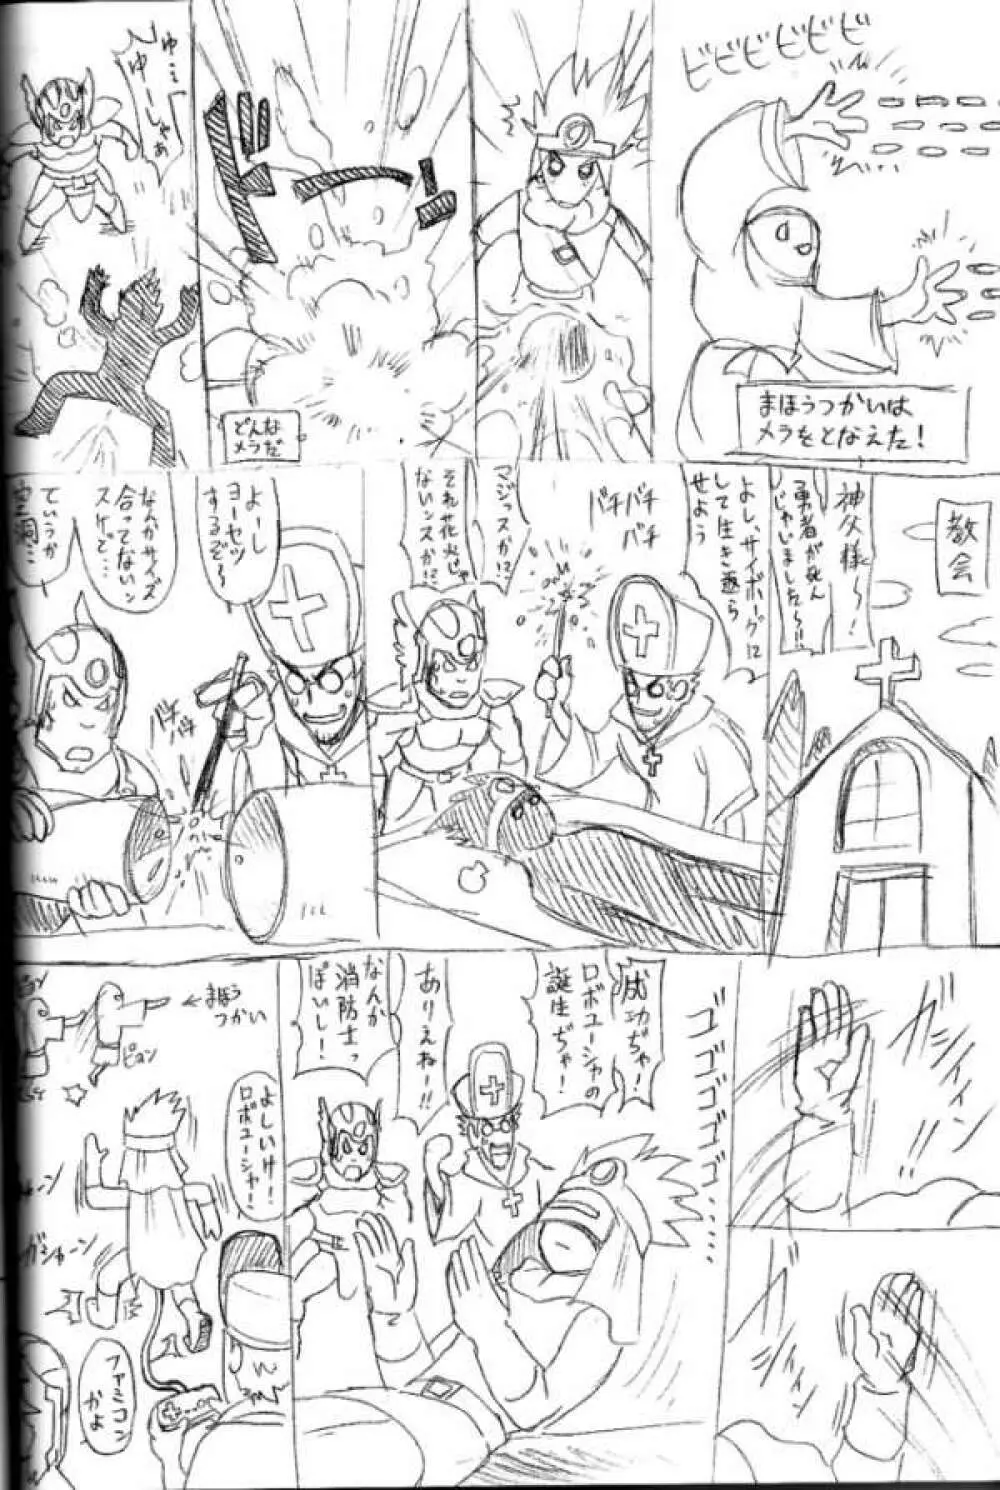 ビビビビビビ
まほうつかいは
メラをとなえた!
ドーン
どんな
メラだ
ゆ…
ゆーしゃぁ
教会
神父様〜!
勇者が死ん
じゃいました〜!!
よし、サイボーグに
して生き返ら
せよう
バチバチ
バチ
マジっスか!?
それ花火じゃ
ないンスか!?
よーし
ヨーセツ
するぞ〜
なんかサイズ
合ってないン
スけど…
ていうか
空洞…
バチ
バチ
ウィィィン
ゴゴゴゴゴゴゴ……
成功ぢゃ!
ロボユーシャの
誕生ぢゃ!
ありえねー!!
なんか
消防士っ
ぽいし!
←まほう
つかい
ピョン
よしいけ!
ロボユーシャ!
ガシャーン
ファミコン
かよ